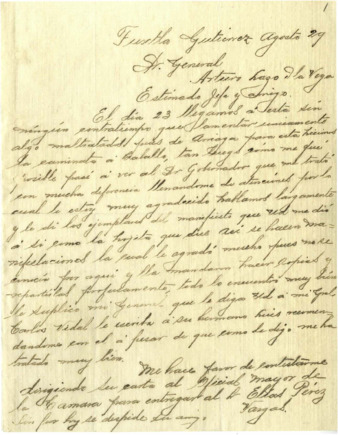 1
Tuxtla Gutiérrez Agosto 29
Sr. General
Arturo Lazo d la Vega
Estimado Jefe y amigo.
El dia 23 llegamos a esta sin
ningún contratiempo que lamentar unicamente
algo maltratados pues de Arriaga para esta hicimos
la caminata á Caballo, tan luego como me fué
posible pasé a ver al Sr Gobernador que me trató
con mucha deferencia llenandome de atenciones por lo
cual le estoy muy agradecido hablamos largamente
y le di los ejemplares del manifiesto que Ud me dió
a si como la hojita que dice asi se hacen ma-
nipulaciones la cual le agradó mucho pues no se
conocia por aqui y ella mandara hacer copias y
repartirlas profusamente, todo lo encuentro muy bien
le suplico mi General que le diga Ud á mi Gral
Carlos Vidal le escriba á su hermano Luis recomen-
dandome con el a pesar de que como le digo me ha
tratado muy bien.
Me hace favor de contestarme
dirigiendo su carta al Oficial Mayor de
la Camara para entregar al C. Elias Pérez
Vargas.
Por hoy se despide su amigo